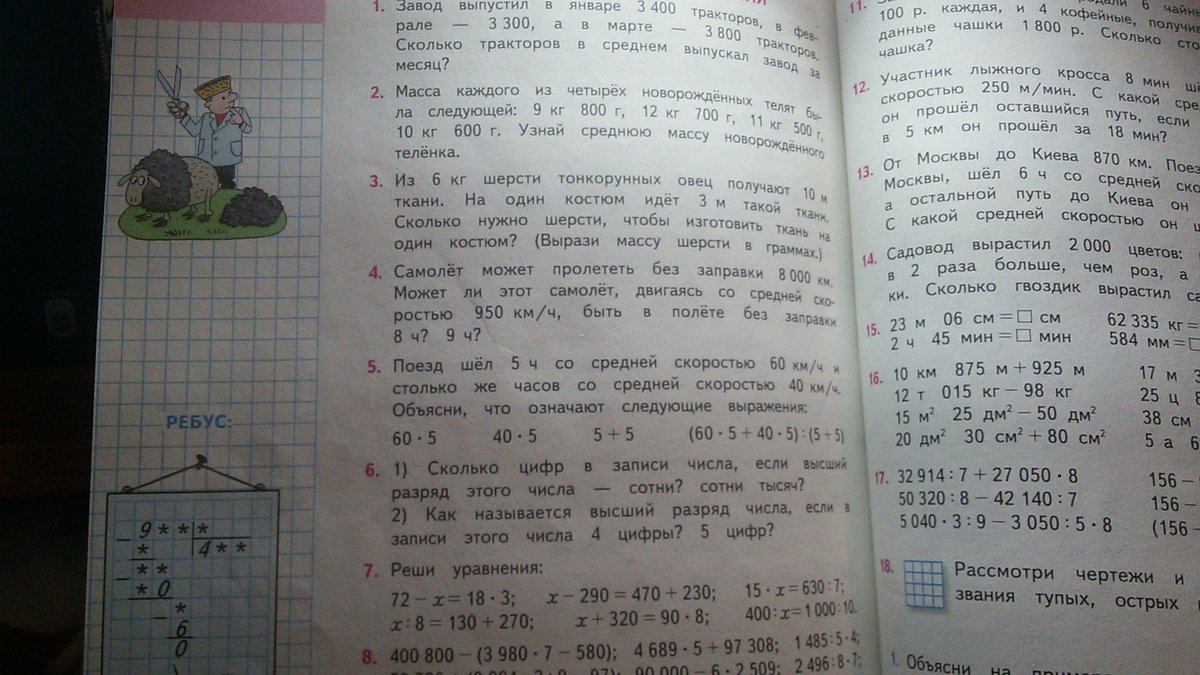 1. Завод выпустил в январе 3 400 тракторов, в фев-
рале — 3 300, а в марте — 3 800 тракторов.
Сколько тракторов в среднем выпускал завод за
месяц?
2. Масса каждого из четырёх новорождённых телят бы-
ла следующей: 9 кг 800 г, 12 кг 700 г, 11 кг 500 г,
10 кг 600 г. Узнай среднюю массу новорождённого
телёнка.
3. Из 6 кг шерсти тонкорунных овец получают 10 м
ткани. На один костюм идёт 3 м такой ткани.
Сколько нужно шерсти, чтобы изготовить ткань на
один костюм? (Вырази массу шерсти в граммах.)
4. Самолёт может пролететь без заправки 8 000 км.
Может ли этот самолёт, двигаясь со средней ско-
ростью 950 км/ч, быть в полёте без заправки
8 ч? 9 ч?
5. Поезд шёл 5 ч со средней скоростью 60 км/ч и
столько же часов со средней скоростью 40 км/ч.
Объясни, что означают следующие выражения:
60 · 5 40 · 5 5 + 5 (60 · 5 + 40 · 5) : (5 + 5)
6. 1) Сколько цифр в записи числа, если высший
разряд этого числа — сотни? сотни тысяч?
2) Как называется высший разряд числа, если в
записи этого числа 4 цифры? 5 цифр?
7. Реши уравнения:
72 − x = 18 · 3; x − 290 = 470 + 230; 15 · x = 630 : 7;
x : 8 = 130 + 270; x + 320 = 90 · 8; 400 : x = 1 000 : 10.
8. 400 800 − (3 980 · 7 − 580); 4 689 · 5 + 97 308; 1 485 : 5 · 4;
90 000 − 6 · 2 509; 2 496 : 8 · 7;
РЕБУС:
− 9 * * | *
* | 4 * *
− * *
* 0
− *
6
0
11.
100 р. каждая, и 4 кофейные,
данные чашки 1 800 р. Сколько
чашка?
12. Участник лыжного кросса 8 мин
скоростью 250 м/мин. С какой
он прошёл оставшийся путь, если
в 5 км он прошёл за 18 мин?
13. От Москвы до Киева 870 км.
Москвы, шёл 6 ч со средней
а остальной путь до Киева он
С какой средней скоростью он
14. Садовод вырастил 2 000 цветов:
в 2 раза больше, чем роз, а
ки. Сколько гвоздик вырастил
15. 23 м 06 см = □ см 62 335 кг =
2 ч 45 мин = □ мин 584 мм = □
16. 10 км 875 м + 925 м 17 м
12 т 015 кг − 98 кг 25 ц
15 м² 25 дм² − 50 дм² 38 см
20 дм² 30 см² + 80 см² 5 а
17. 32 914 : 7 + 27 050 · 8 156 −
50 320 : 8 − 42 140 : 7 156 −
5 040 · 3 : 9 − 3 050 : 5 · 8 (156
18. Рассмотри чертежи и
звания тупых, острых
1. Объясни на